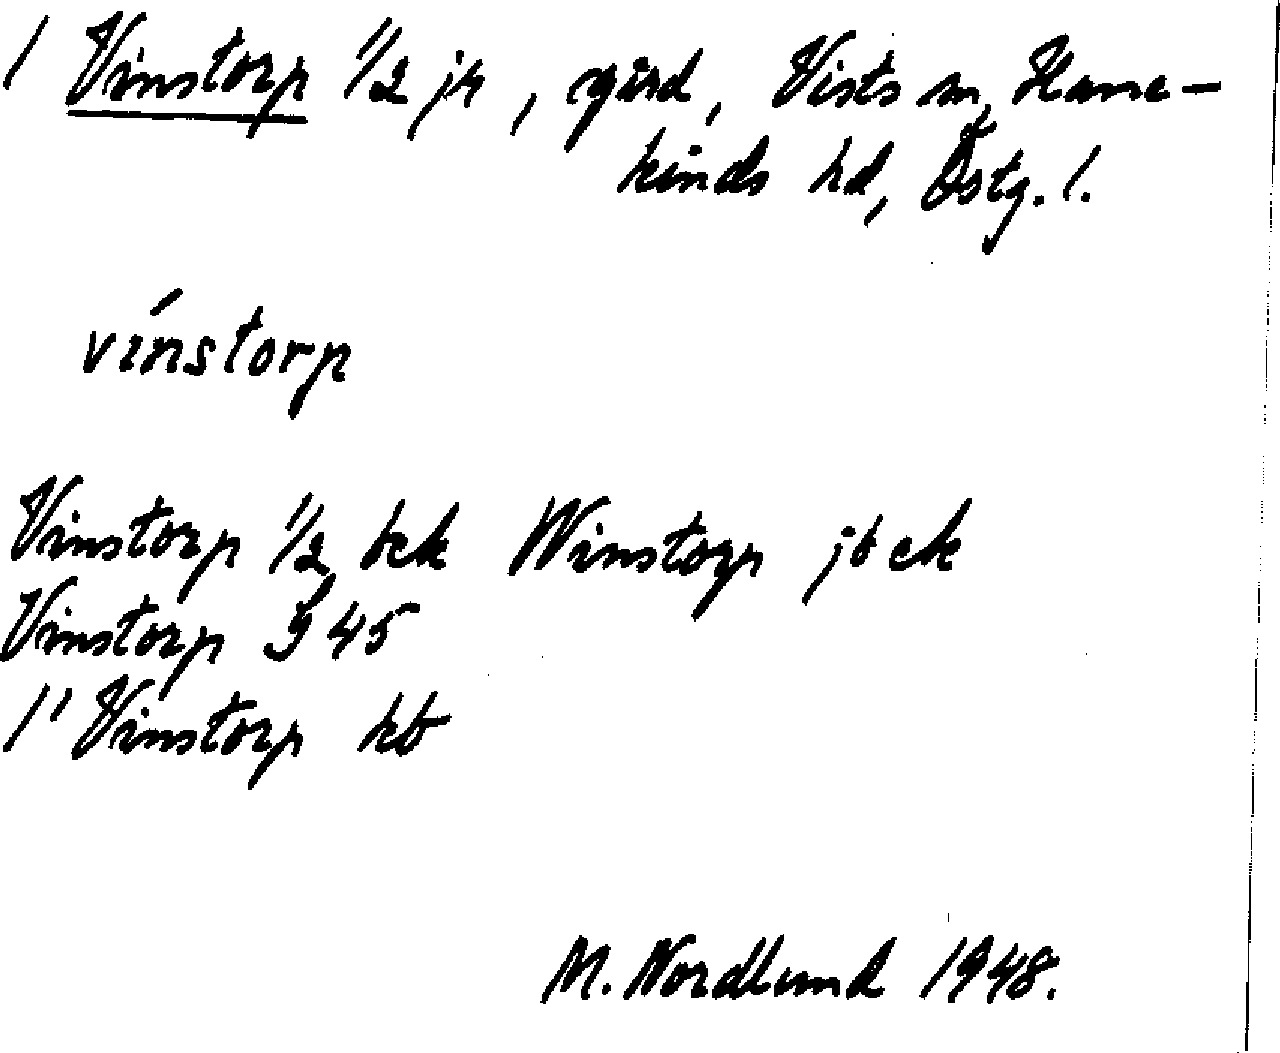 / Vinstorp 1/2 jr, gård, Vists sn, Hane-
kinds hd, Östg. l.
vínstorp
Vinstorp 1/2 bek Winstorp jb ek
Vinstorp J 45
/' Vinstorp kb
M. Nordlund 1948.